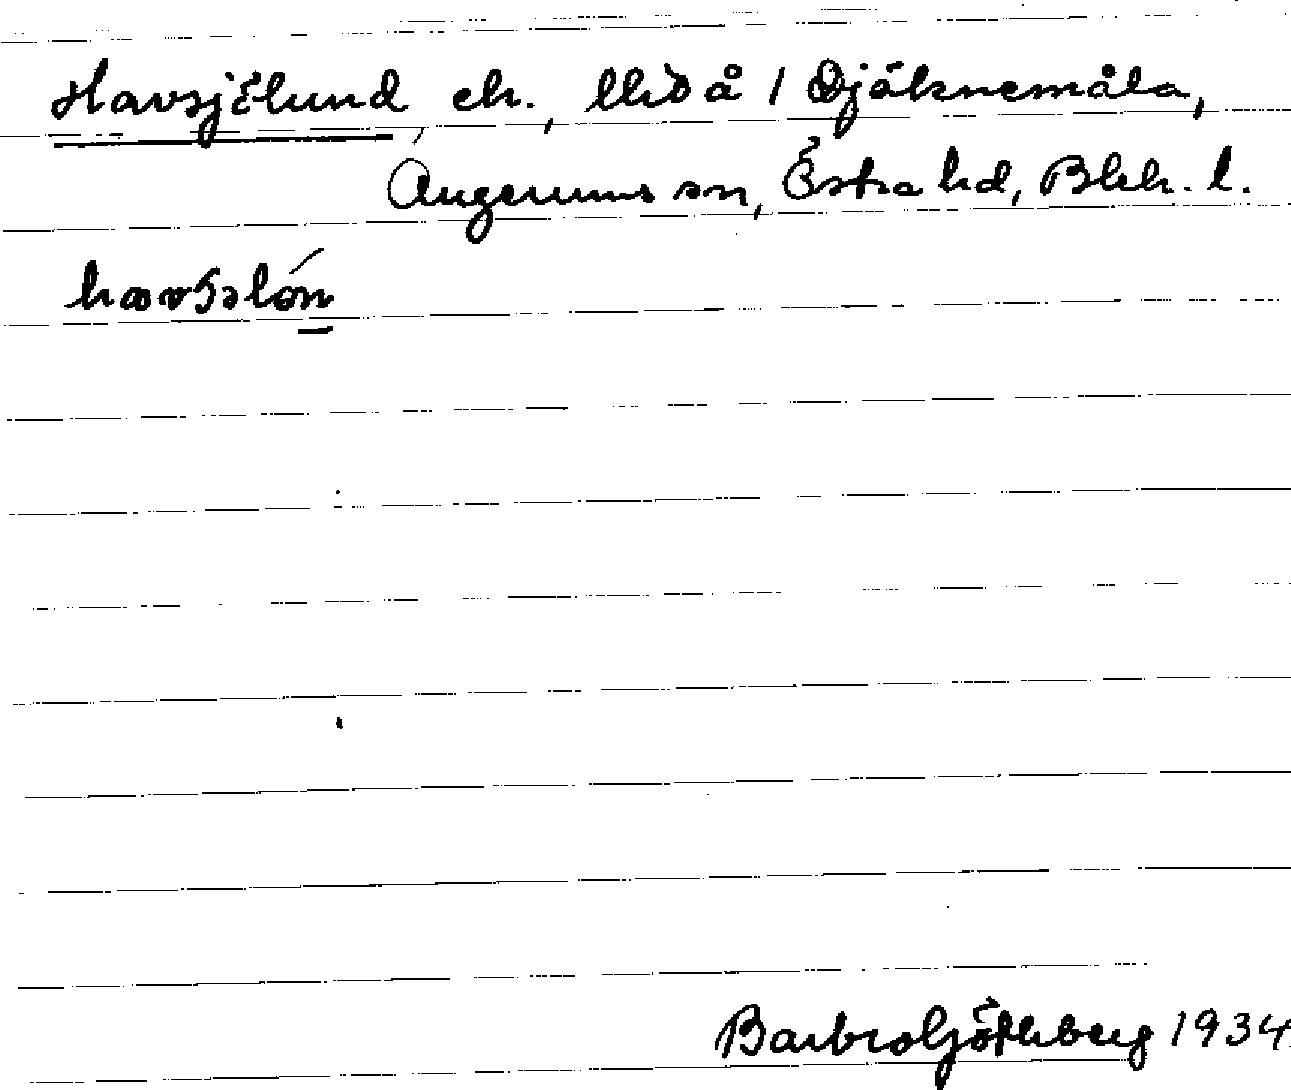 Havsjölund, ek.,
Djäknemåla,
Augerums sn, Östra hd, Blek. l.
Barbro Göthberg 1934